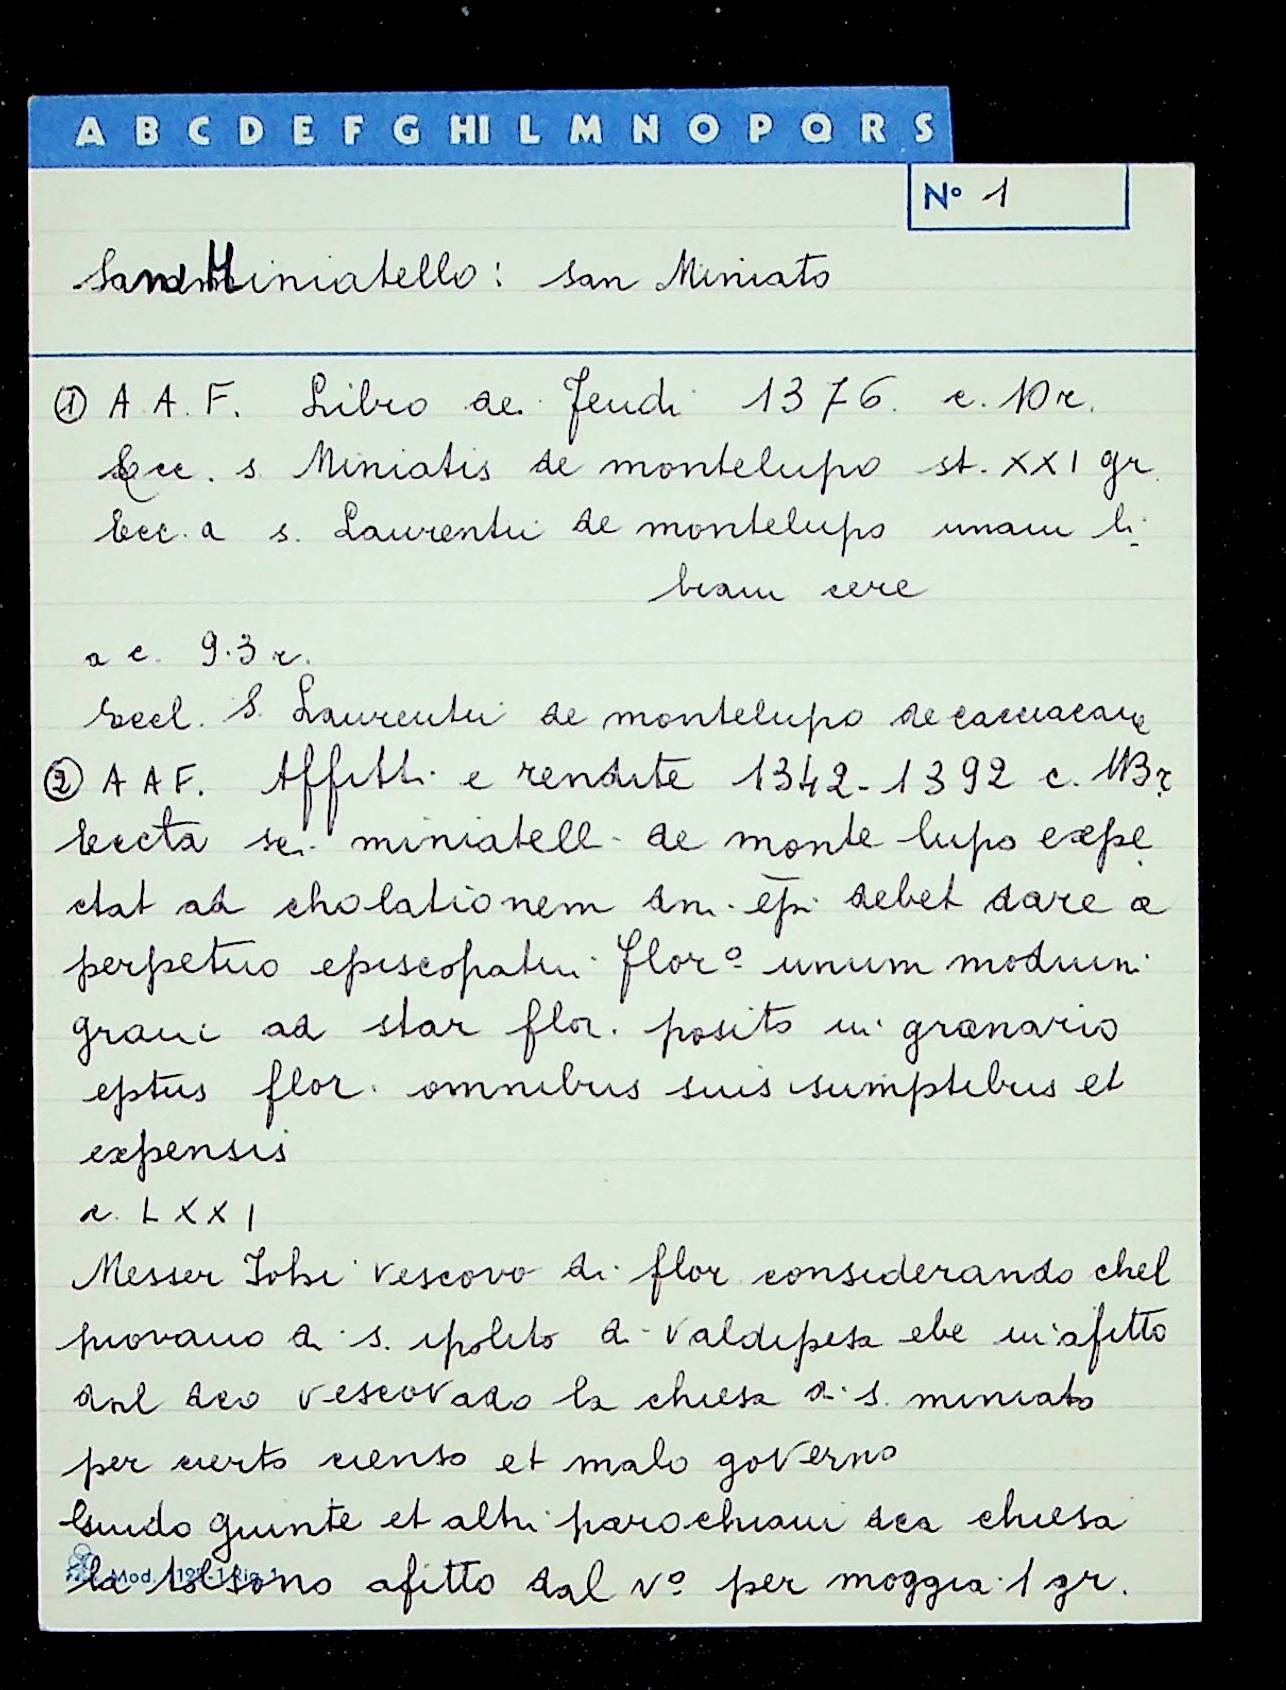 A B C D E F G HI L M N O P Q R S
N° 1
Sanminiatello: San Miniato
① A. A. F. Libro dei Feudi 1376. c. 10r.
Ecc. s. Miniatis de montelupo st. XXI gr.
Ecc.a s. Laurentii de montelupo unam li
bram cere
a c. 93r.
Eccl. S. Laurentii de montelupo de cacciacane
② A A F. Affitti e rendite 1342-1392 c. 113r
Eccta sci. miniatell. de monte lupo expe
ctat ad cholationem dni. epi. debet dare a
perpetuo episcopatui flor° unum modium
grani ad star flor. posito in granario
eptus flor. omnibus suis sumptibus et
expensis
c. LXXI
Messer Iohi vescovo di flor considerando chel
piovano di s. ipolito di valdipesa ebe in afitto
dal dco vescovado la chiesa di s. miniato
per certo cienso et malo governo
Guido giunte et altri parochiani dca chiesa
la tolsono afitto dal v° per moggia 1 gr.